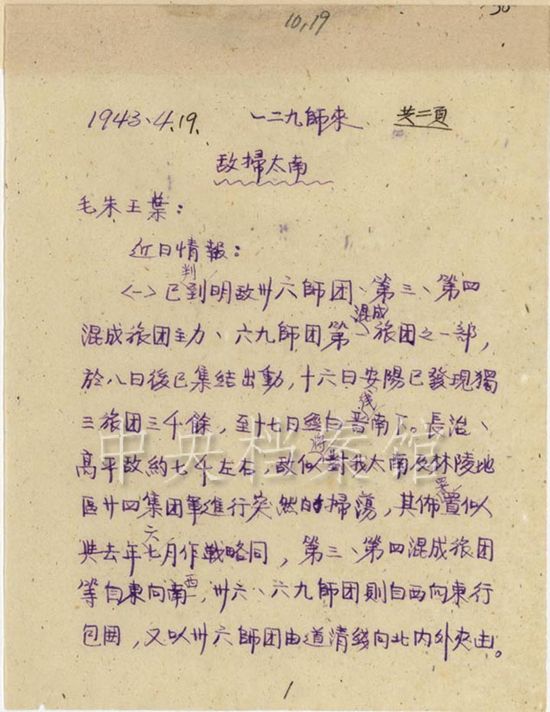 10,19
30
1943、4.19. 一二九師來 共二頁
敌掃太南
毛朱王葉：
近日情報：
㈠已判到明敌卅六師团、第三、第四
混成旅团主力、六九師团第一混成旅团之一部，
於八日後已集结出動，十六日安陽已發現獨
三旅团三千餘，至十七日經白晋线南下。長治、
高平敌約七千左右，敌似將對我太南及林陵地
區廿四集团軍進行突然的掃蕩，其佈置似
與去年六七月作戰略同，第三、第四混成旅团
等自東向南西，卅六、六九師团則自西向東行
包囲，又以卅六師团由道清綫向北内外夾击。
1
中央档案馆